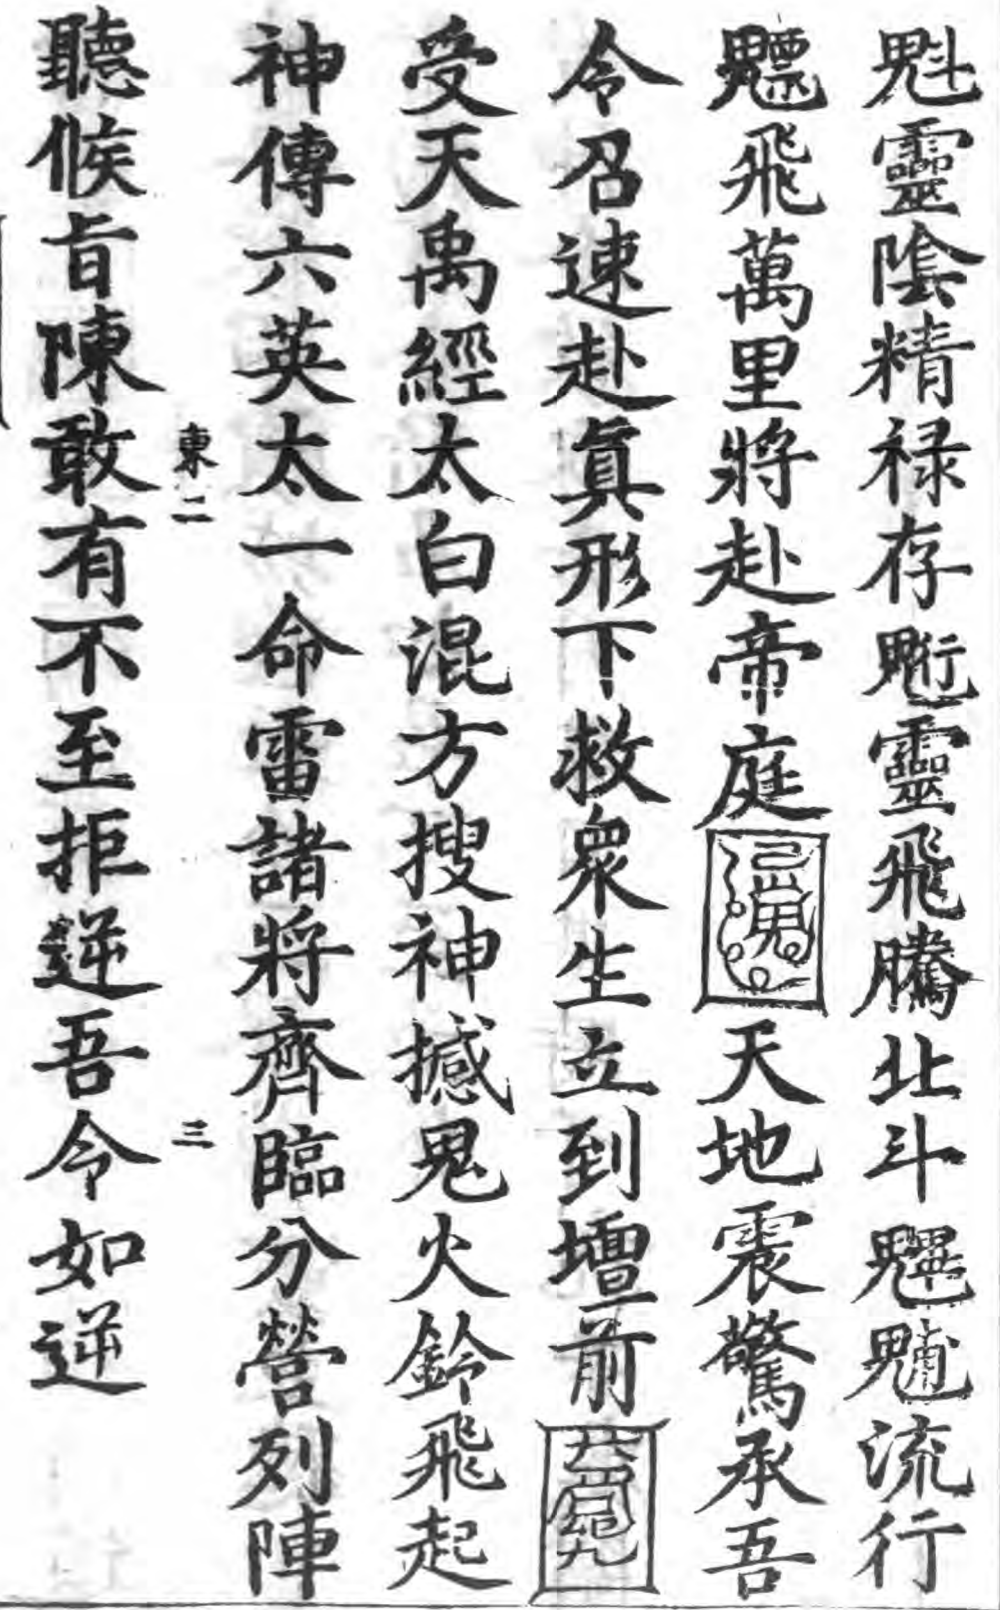 魁靈陰精禄存䰢靈飛騰北斗魓流行
魒飛萬里將赴帝庭天地震驚承吾
令召速赴真形下救衆生立到壇前
受天禹經太白混方搜神撼鬼火鈴飛起
神傳六英太一命雷諸將齊臨分營列陣
東二
三
聽候旨陳敢有不至拒逆吾令如逆